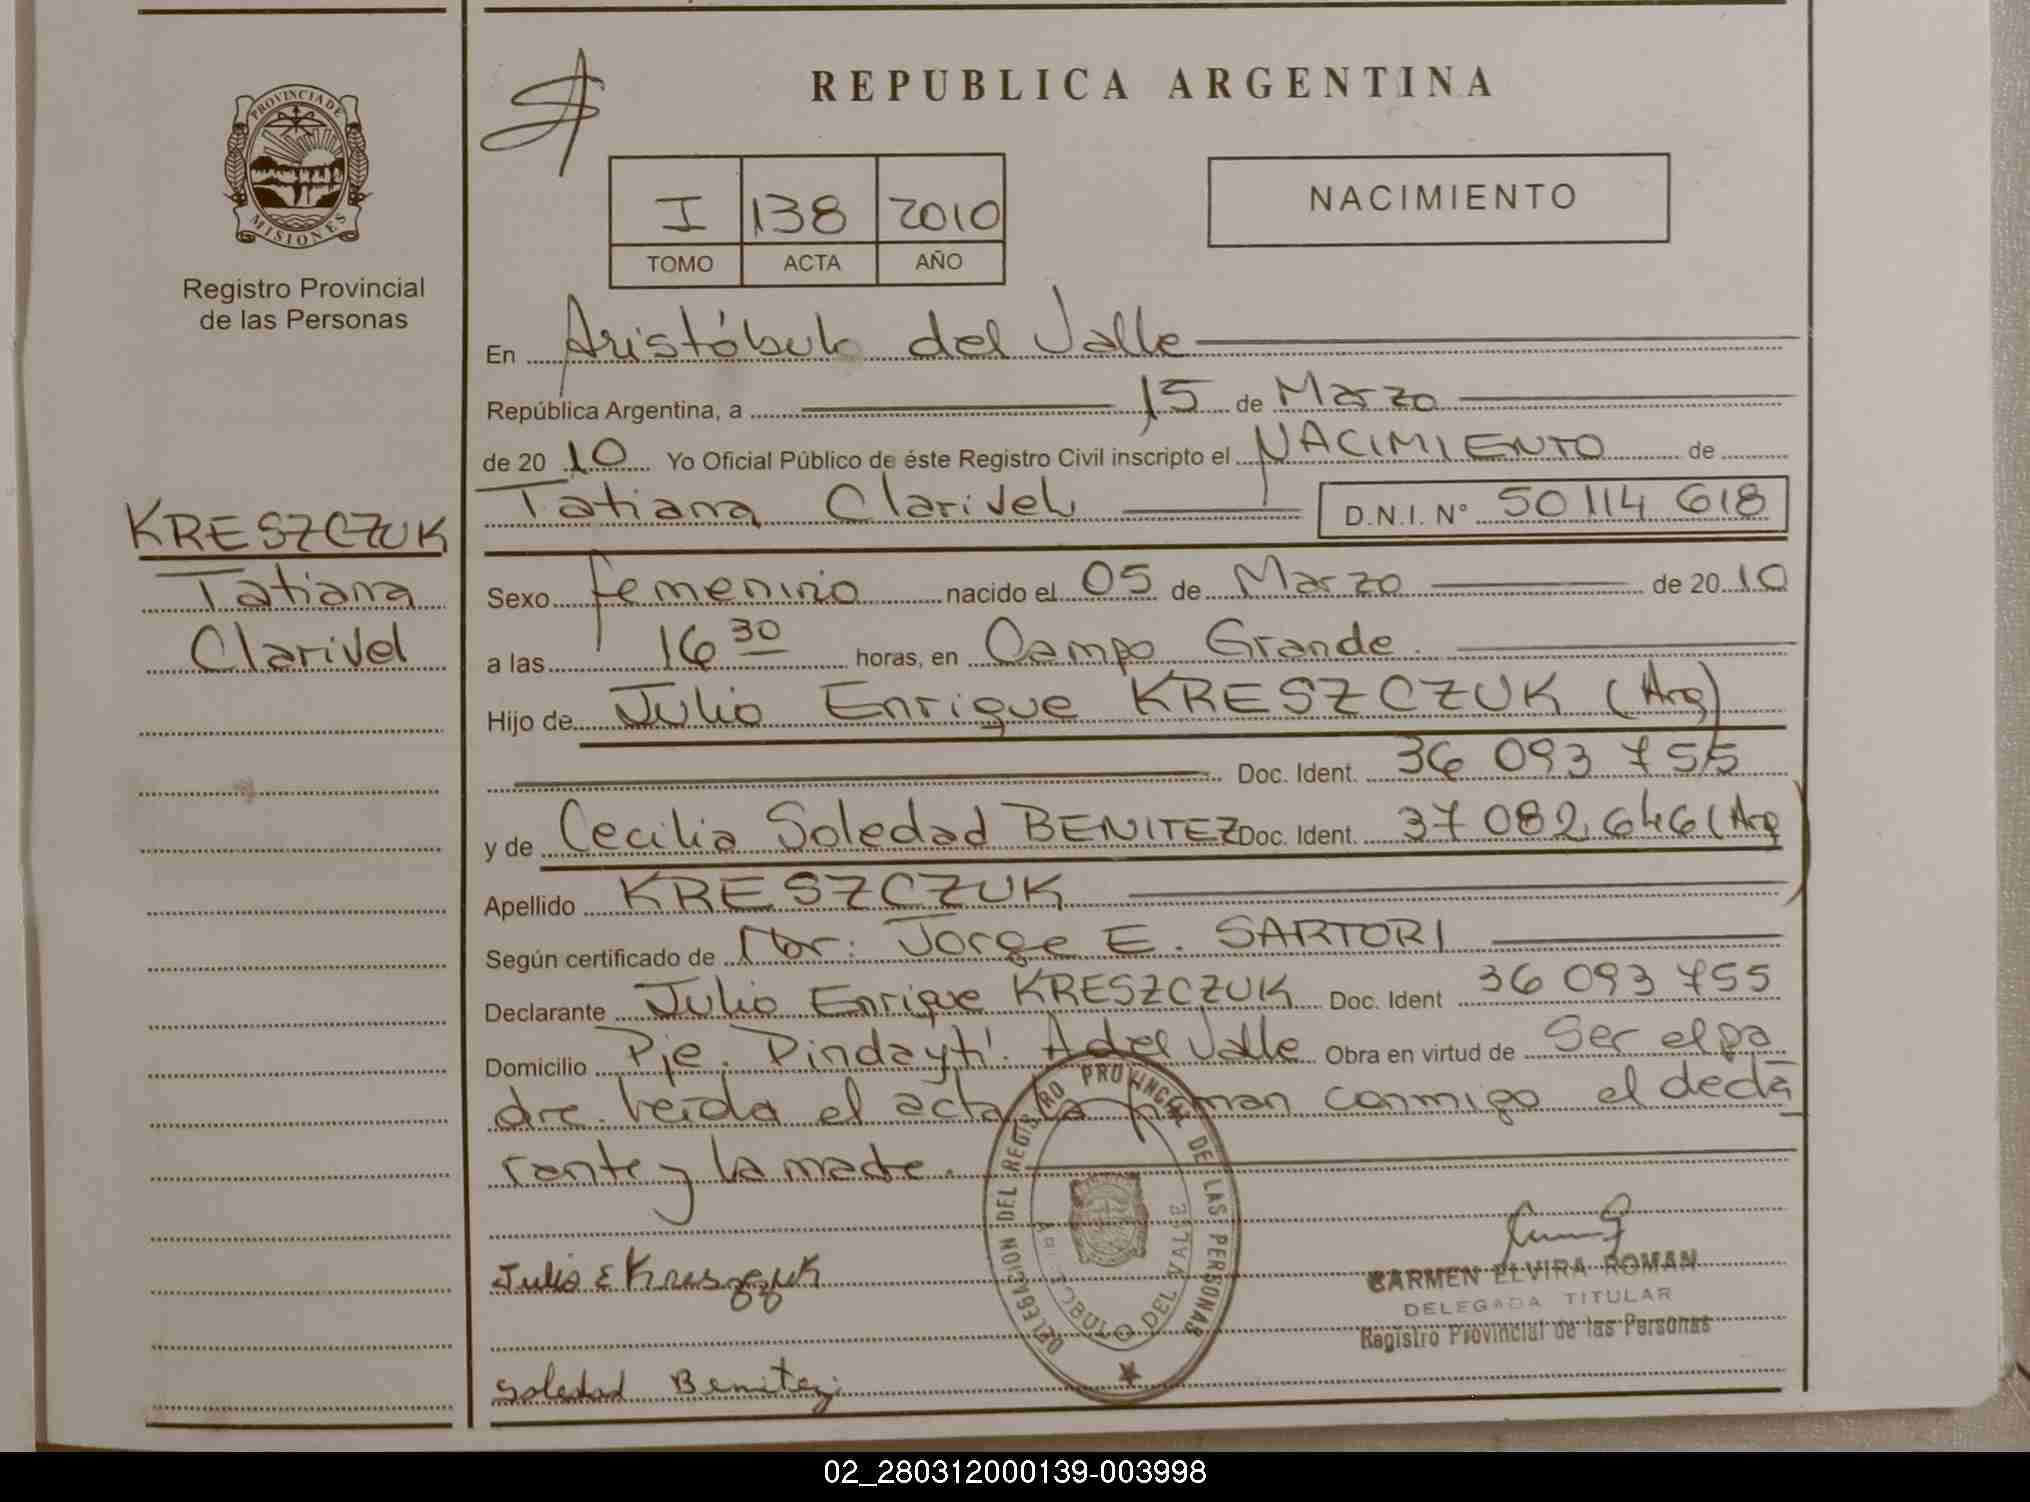 REPUBLICA ARGENTINA
PROVINCIA DE
MISIONES
Registro Provincial
de las Personas
I 138 2010
TOMO ACTA AÑO
NACIMIENTO
En Aristóbulo del Valle
República Argentina, a 15 de Marzo
de 20 10 Yo Oficial Público de éste Registro Civil inscripto el NACIMIENTO de
Tatiana Clarivel D.N.I. N° 50 114 618
KRESZCZUK
Tatiana
Clarivel
Sexo femenino nacido el 05 de Marzo de 20 10
a las 16 30 horas, en Campo Grande.
Hijo de Julio Enrique KRESZCZUK (Arg)
Doc. Ident. 36 093 755
y de Cecilia Soledad BENITEZ Doc. Ident. 37 082 646 (Arg)
Apellido KRESZCZUK
Según certificado de Dr: Jorge E. SARTORI
Declarante Julio Enrique KRESZCZUK Doc. Ident 36 093 755
Domicilio Pje. Pindaytí. A del Valle Obra en virtud de Ser el pa
dre. Leída el acta la firman conmigo el decla
rante y la madre.
Julio E Kreszczuk
Soledad Benitez
DELEGACION DEL REGISTRO PROVINCIAL DE LAS PERSONAS
ARISTOBULO DEL VALLE
CARMEN ELVIRA ROMAN
DELEGADA TITULAR
Registro Provincial de las Personas
02_280312000139-003998